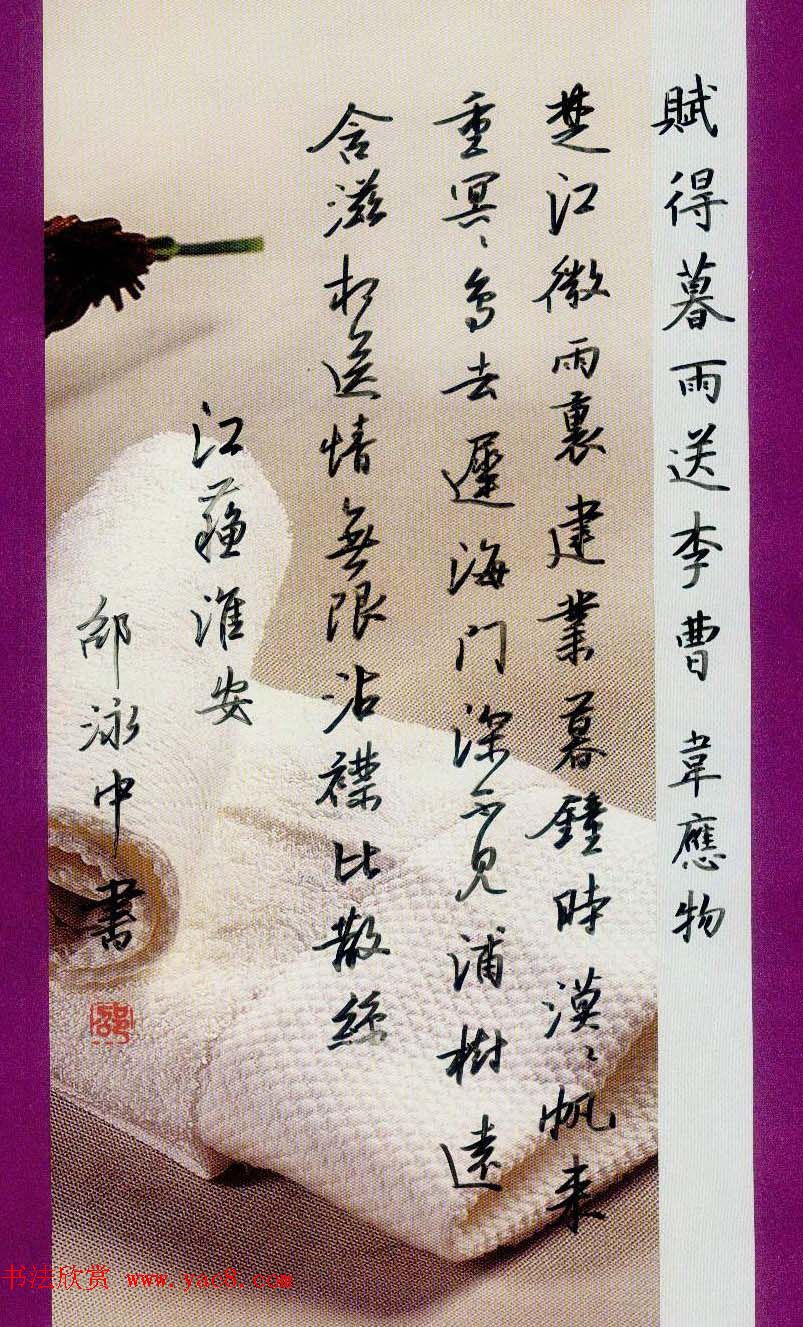 賦得暮雨送李曹 韋應物
楚江微雨裏建業暮鐘時漠〻帆来
重冥〻鳥去遲海门深不見浦樹遠
含滋相送情無限沾襟比散絲
江蘓淮安
邰泳中書
书法欣赏 www.yac8.com